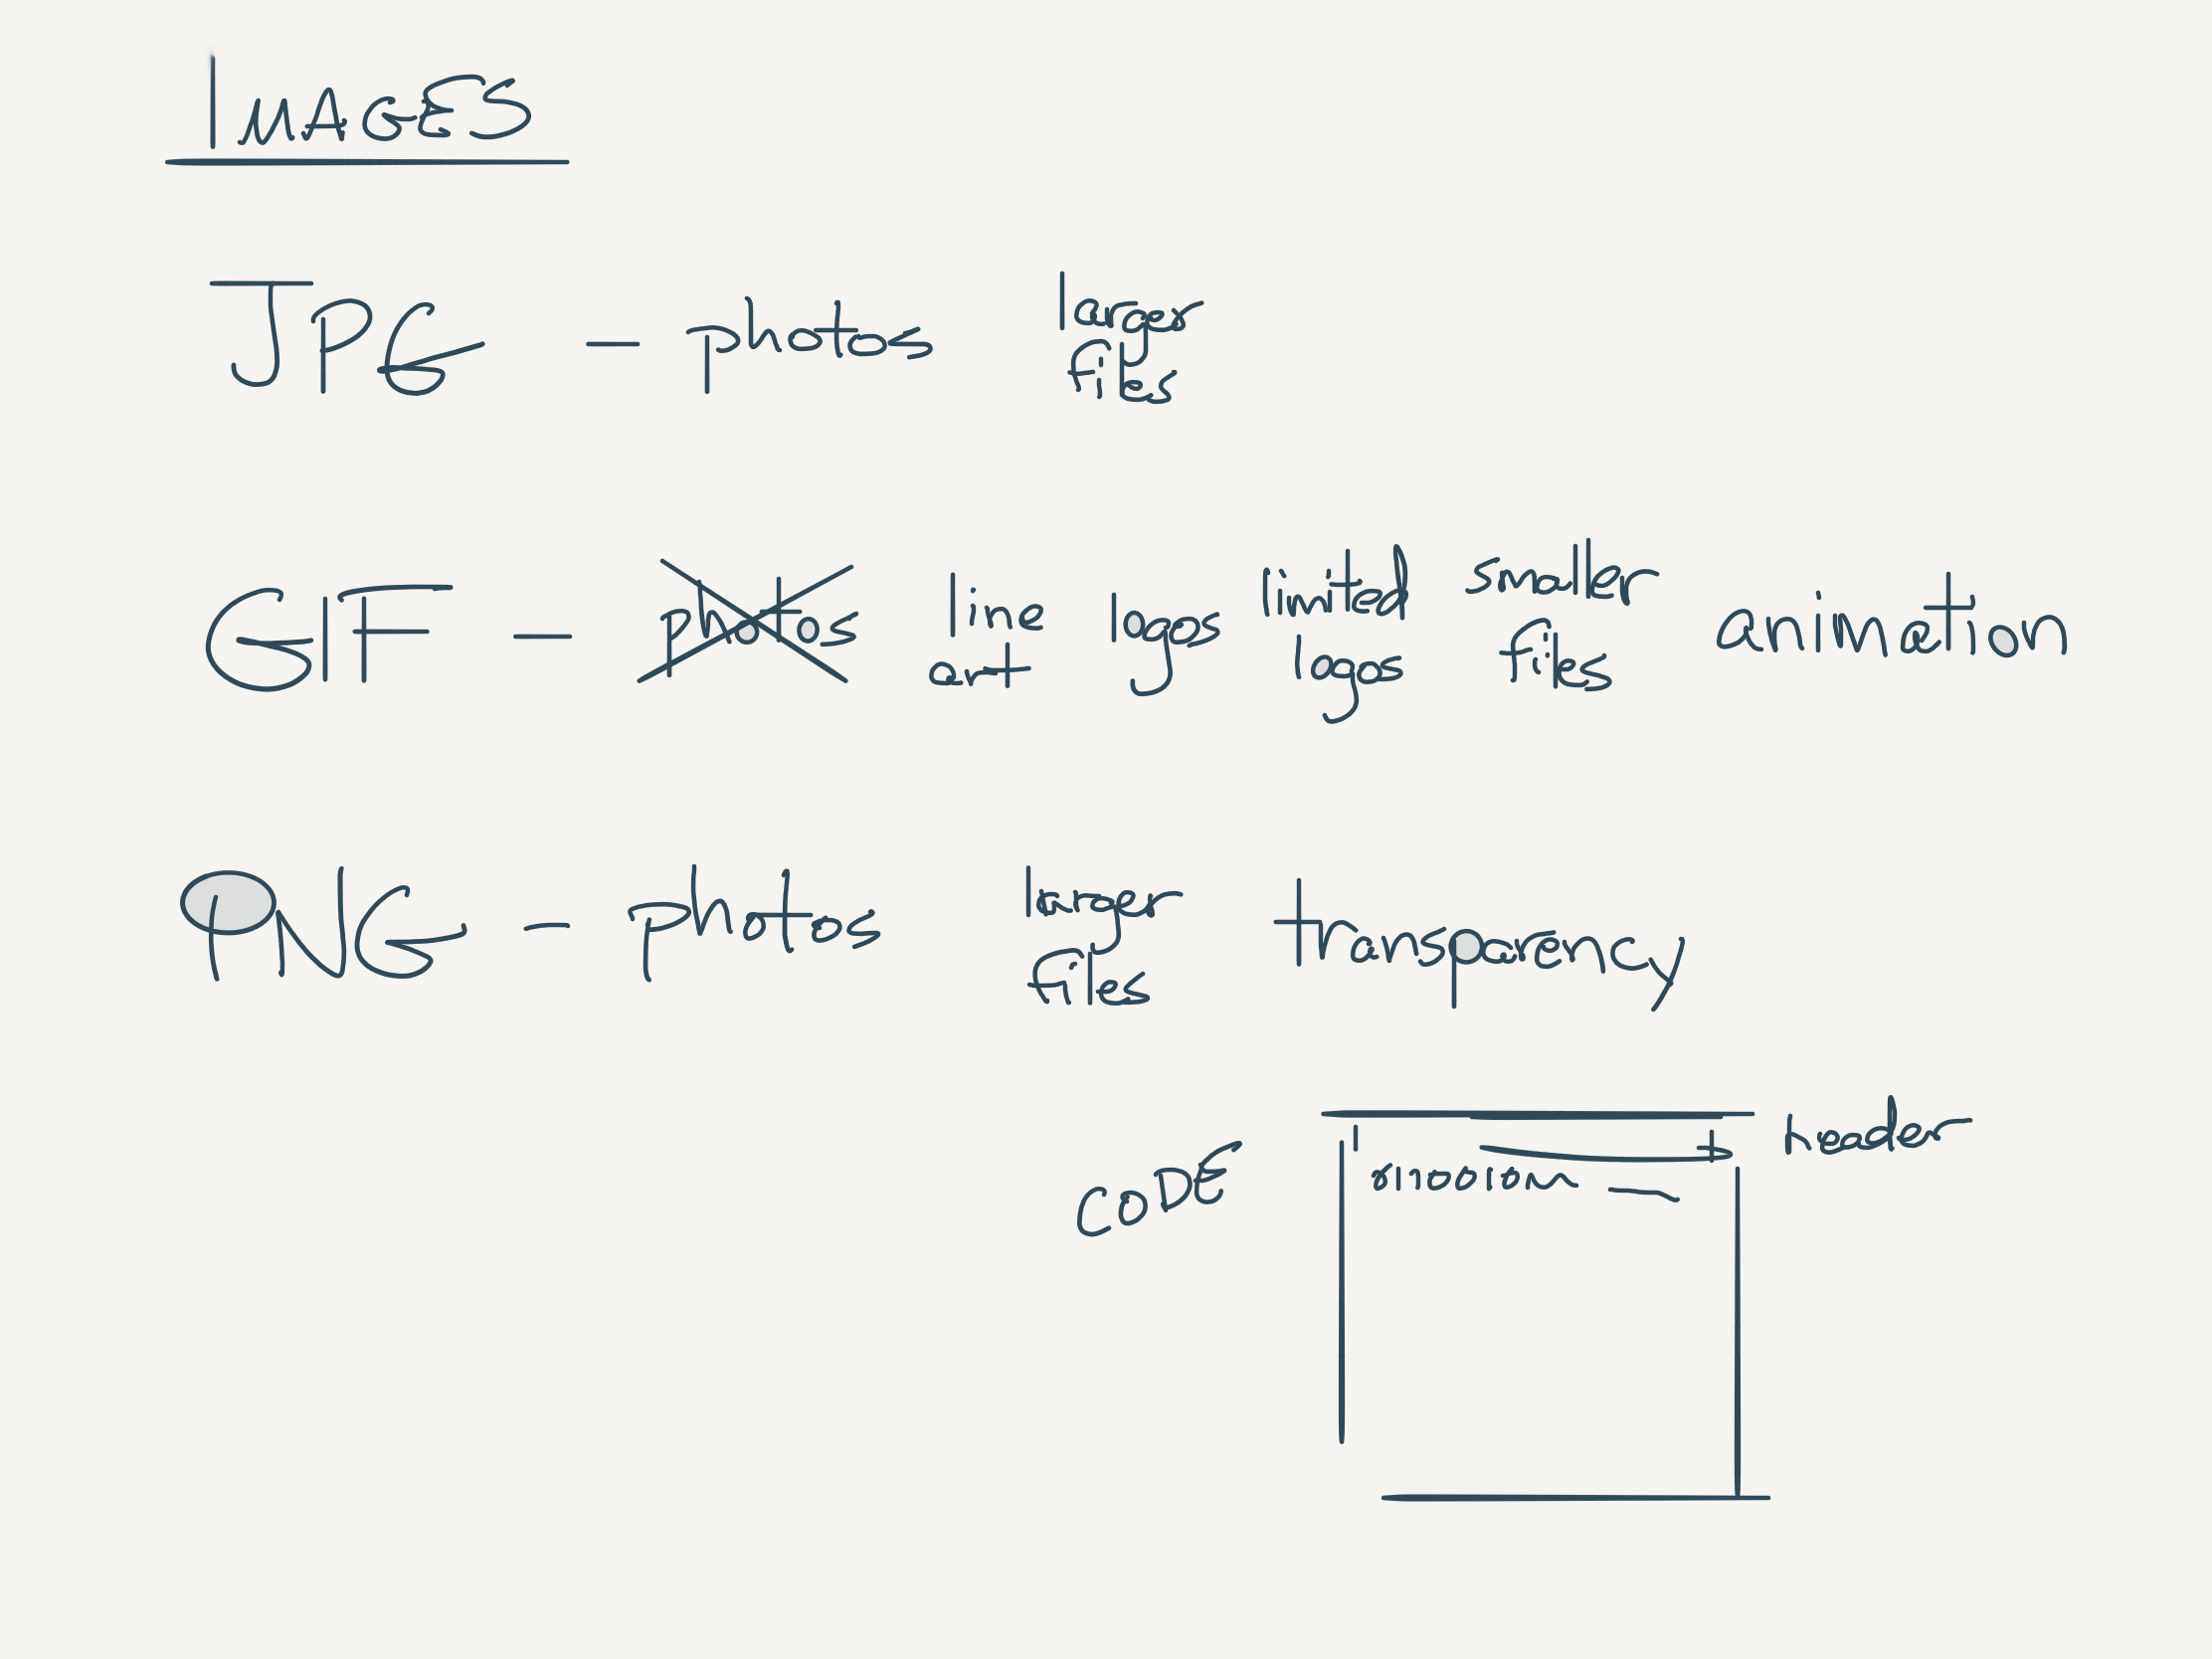 IMAGES
JPG - photos larger files
GIF - photos line art logos limited logos smaller files animation
PNG - photos larger files transparency
CODE
header